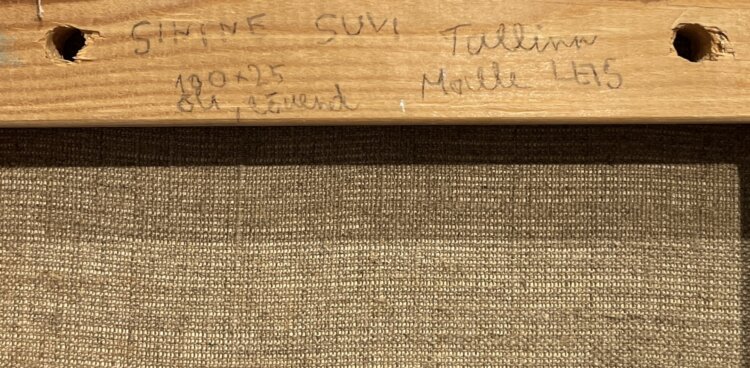 SININE SUVI Tallinn
100×25 Malle LEIS
õli, lõuend